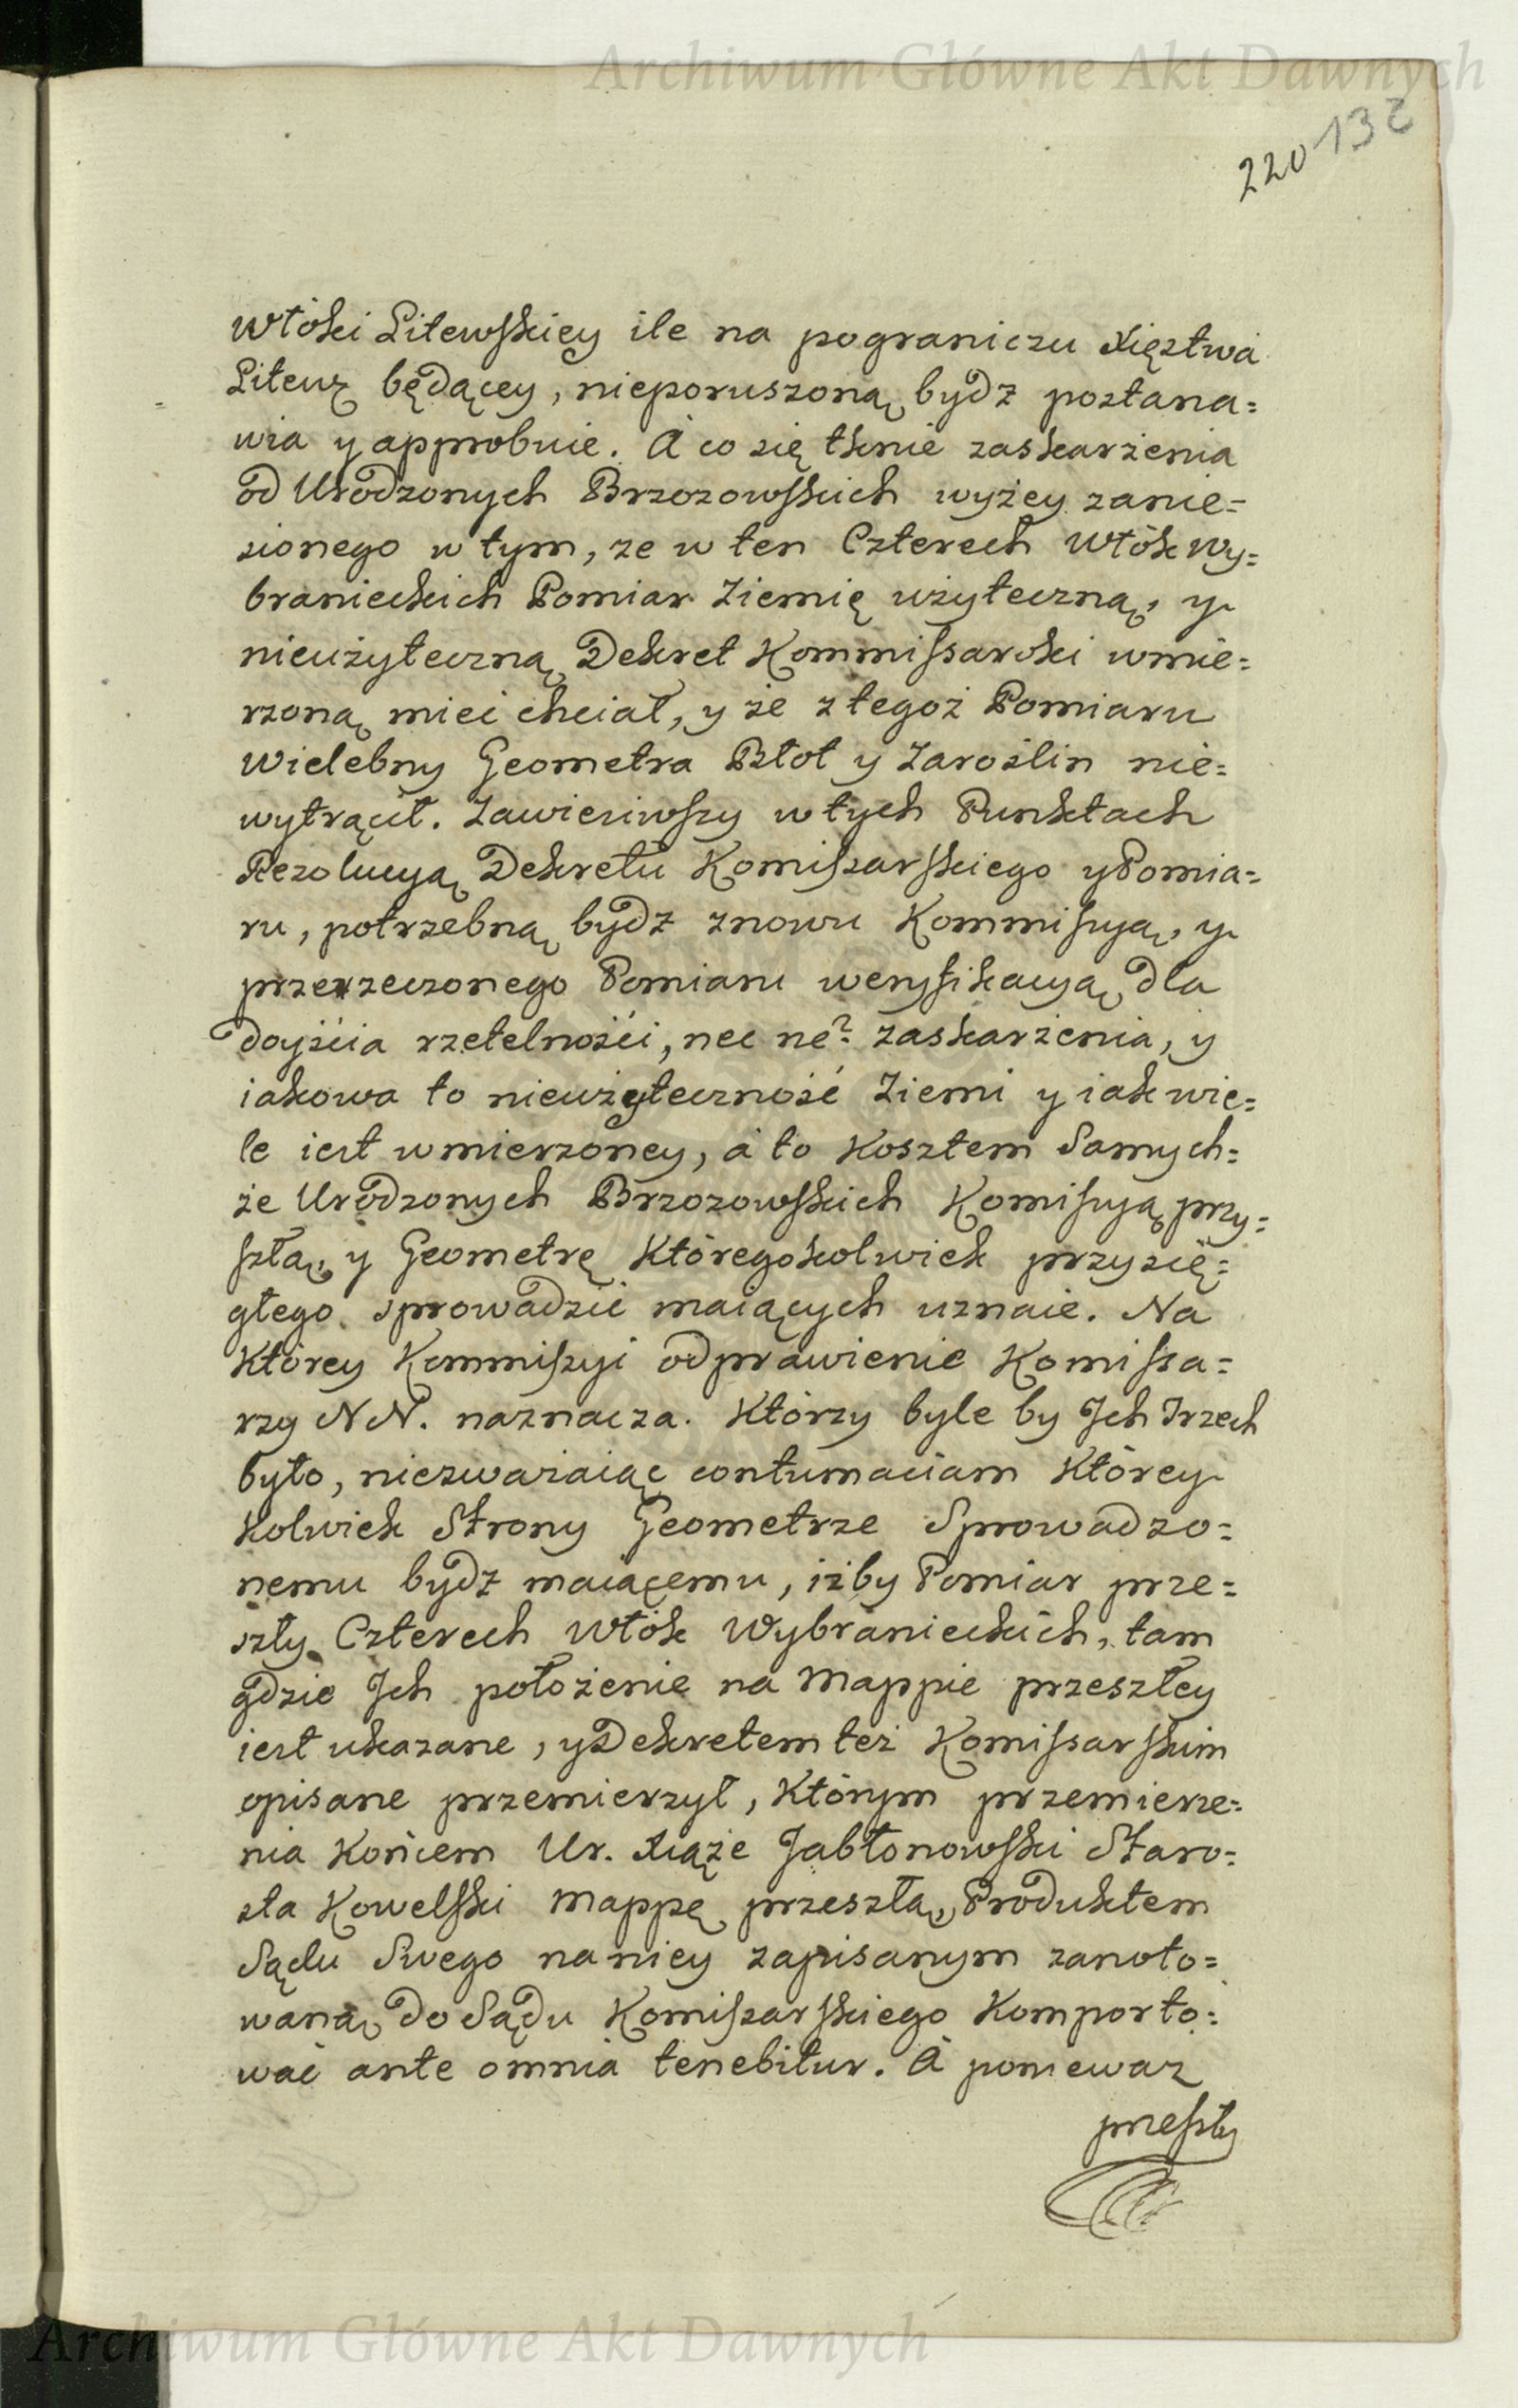 Archiwum Główne Akt Dawnych
220 132
Włóki Litewskiey ile na pograniczu Xięztwa
Litewz będącey, nieporuszoną bydz postana=
wia y approbuie. A co się tknie zaskarżenia
od Urodzonych Brzozowskich wyżey zanie=
sionego w tym, ze w ten Czterech Włók Wy=
branieckich Pomiar Ziemię użyteczną, y
nieużyteczną Dekret Kommissarski wmie=
rzoną mieć chciał, y że z tegoż Pomiaru
Wielebny Geometra Błot y Zaroślin nie=
wytrącił. Zawiesiwszy w tych Punktach
Rezolucyą Dekretu Komissarskiego y Pomia=
ru, potrzebną bydz znowu Kommissyą, y
przerzeczonego Pomiaru weryfikacyą dla
doyścia rzetelności, nec ne? zaskarżenia, y
iakowa to nieużyteczność Ziemi y iak wie=
le iest wmierzoney, á to Kosztem Samych=
że Urodzonych Brzozowskich Komissyą przy=
szłą, y Geometrę Któregokolwiek przysię=
głego sprowadzić maiących uznaie. Na
Którey Kommissyi odprawienie Komissa=
rzy N N. naznacza. Którzy byle by Jch Trzech
było, niezważaiąc contumaciam Którey
Kolwiek Strony Geometrze Sprowadzo=
nemu bydz maiącemu, iżby Pomiar prze=
szły Czterech Włók Wybranieckich, tam
gdzie Jch położenie na Mappie przeszłey
iest ukazane, y Dekretem też Komissarskim
opisane przemierzył, Którym przemierze=
nia Końcem Ur. Xiąże Jabłonowski Staro=
sta Kowelski Mappę przeszłą, Produktem
Sądu Swego na niey zapisanym zanoto=
waną do Sądu Komissarskiego Komporto=
wać ante omnia tenebitur. A poniewaz
przeszły
Archiwum Główne Akt Dawnych